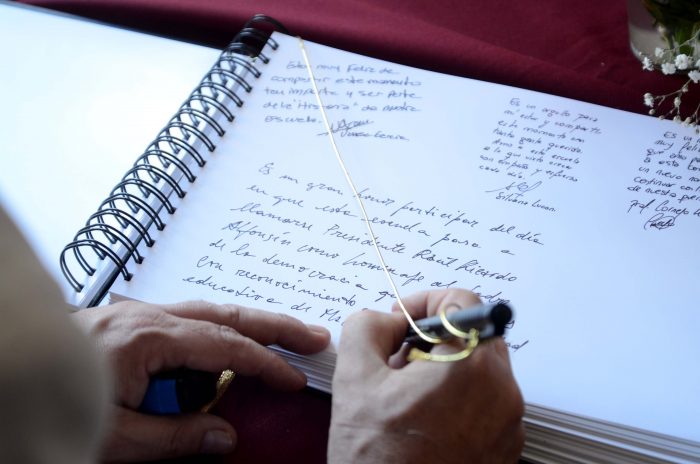 Estoy muy feliz de
compartir este momento
tan importa y ser parte
de la "Historia" de nuestra
Escuela.
Es un orgullo para
mi estar y compartir
este momento con
tanta gente querida.
Amo a esta escuela
a la que visto crecer
con empeño y esfuerzo
cada día.
Silvana Lucon.
Es un
muy feli
que
a esta
un nuevo
continuar con
de nuestra
Prof. Cornejo
Es un gran honor participar del día
en que esta escuela pasa a
llamarse Presidente Raúl Ricardo
Alfonsín como homenaje al Padre
de la democracia
con reconocimiento
educativa de